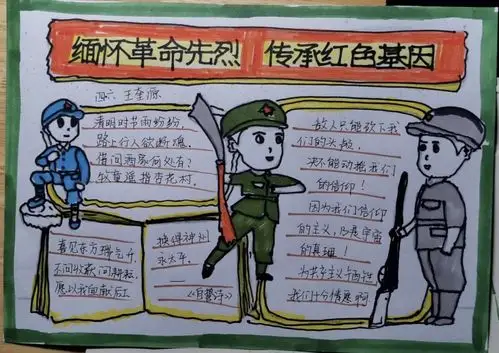 缅怀革命先烈 传承红色基因
四六 王奎源
清明时节雨纷纷,
路上行人欲断魂.
借问酒家何处有?
牧童遥指杏花村.
喜见东方瑞气升,
不问收获问耕耘.
愿以我血献后土
换得神州
永太平.
《自誓诗》
敌人只能砍下我
们的头颅,
决不能动摇我们
的信仰!
因为我们信仰
的主义,乃是宇宙
的真理!
为共产主义牺牲
我们十分情愿啊